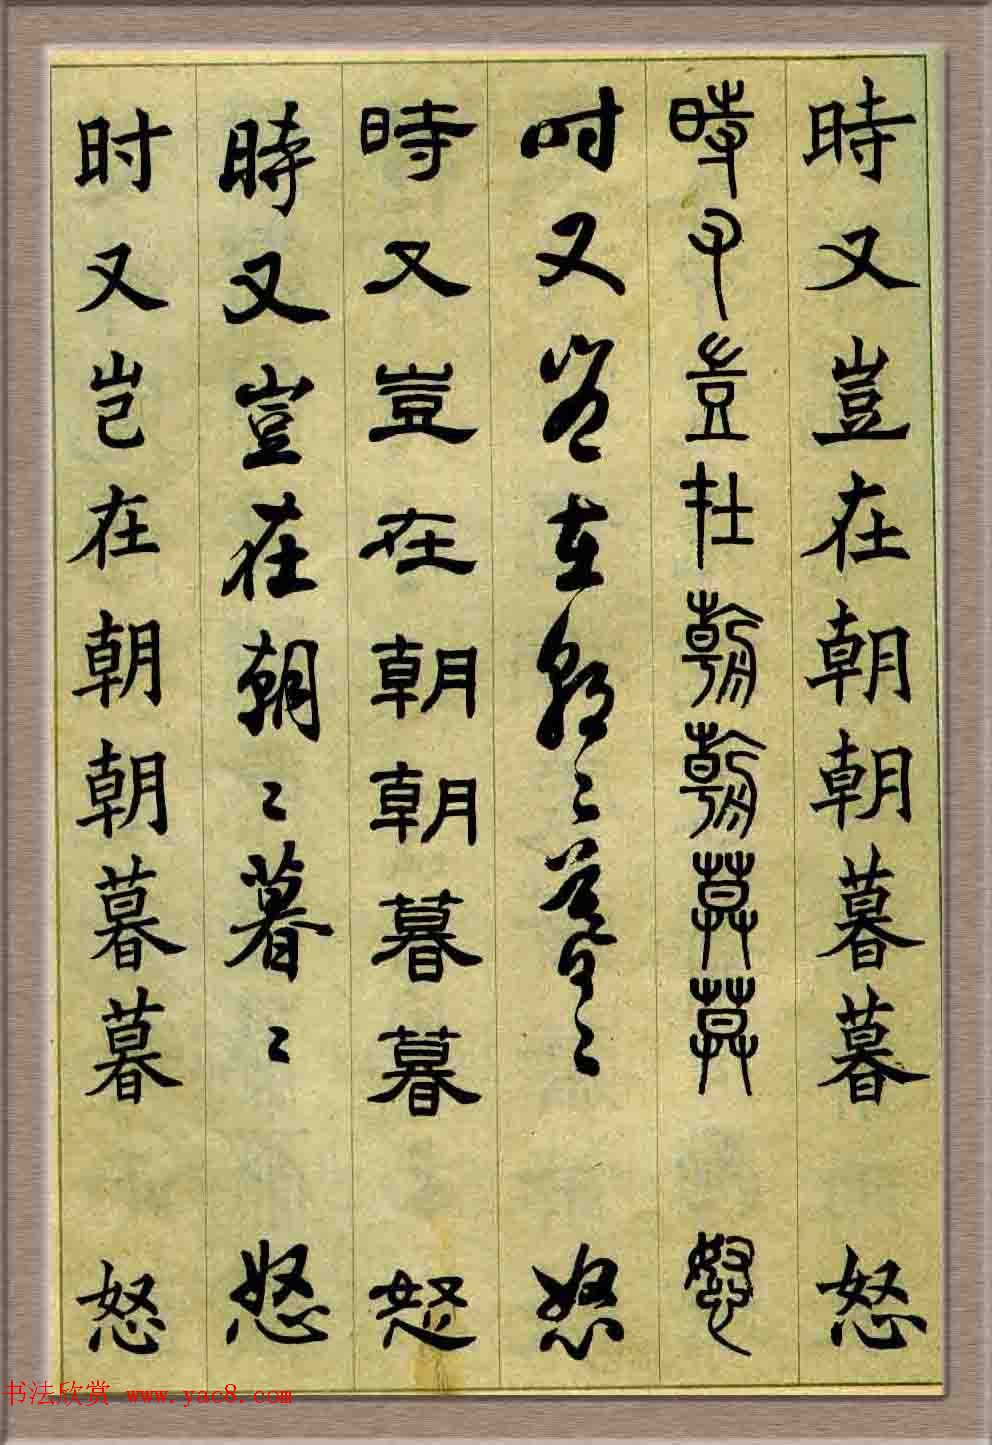 時又豈在朝朝暮暮 怒
時又豈在朝朝暮暮 怒
时又岂在朝〻暮〻 怒
時又豈在朝朝暮暮 怒
時又豈在朝〻暮〻 怒
时又岂在朝朝暮暮 怒
书法欣赏 www.yac8.com